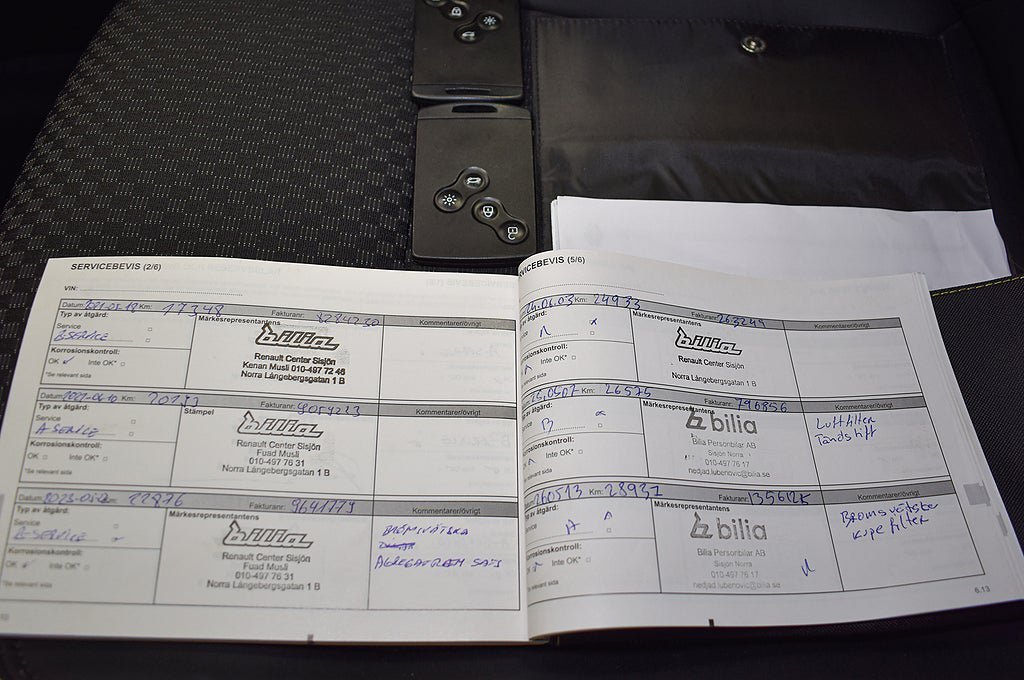 SERVICEBEVIS (2/6)
VIN:
Datum: Km: 17348 Fakturanr: 8284230
Typ av åtgärd: Märkesrepresentantens Kommentarer/övrigt
Service
bilia
Korrosionskontroll:
Renault Center Sisjön
Kenan Musli 010-497 72 46
Norra Långebergsgatan 1 B
OK Inte OK*
*Se relevant sida
Datum: Km: Fakturanr: Kommentarer/övrigt
Typ av åtgärd: Stämpel
Service
A-SERVICE
bilia
Korrosionskontroll:
Renault Center Sisjön
Fuad Musli
010-497 76 31
Norra Långebergsgatan 1 B
OK Inte OK*
*Se relevant sida
Datum: Km: 22876 Fakturanr: 9641779
Typ av åtgärd: Märkesrepresentantens Kommentarer/övrigt
Service
bilia
BROMSVÄTSKA
Korrosionskontroll:
Renault Center Sisjön
Fuad Musli
010-497 76 31
Norra Långebergsgatan 1 B
OK Inte OK*
*Se relevant sida
SERVICEBEVIS (5/6)
24.06.03 Km: 24933 Fakturanr: 263249
åtgärd: Märkesrepresentantens Kommentarer/övrigt
bilia
Korrosionskontroll:
Renault Center Sisjön
Norra Långebergsgatan 1 B
Inte OK*
*Se relevant sida
25.0507 Km: 26575 Fakturanr: 796856
åtgärd: Märkesrepresentantens Kommentarer/övrigt
B
bilia
Luftfilter
Tändstift
Korrosionskontroll:
Bilia Personbilar AB
Sisjön Norra
010-497 76 17
nedjad.lubenovic@bilia.se
Inte OK*
Se relevant sida
260513 Km: 28931 Fakturanr:
av åtgärd: Märkesrepresentantens Kommentarer/övrigt
Service
A
bilia
Bromsvätska
kupefilter
Korrosionskontroll:
Bilia Personbilar AB
Sisjön Norra
010-497 76 17
nedjad.lubenovic@bilia.se
Inte OK*
relevant sida
6.13